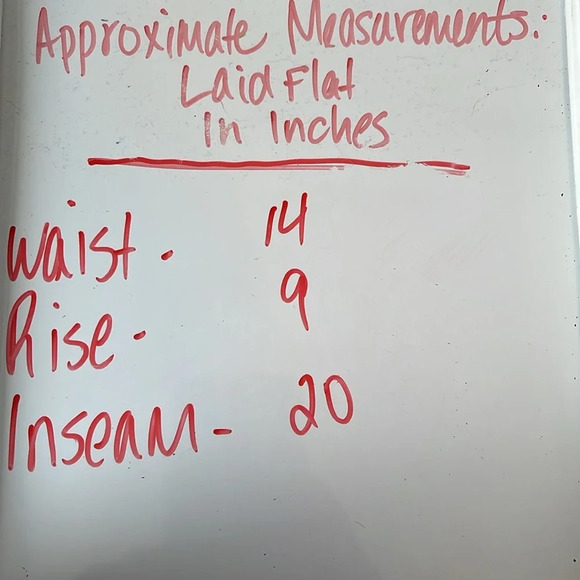 Approximate Measurements:
Laid Flat
In Inches
Waist - 14
Rise - 9
Inseam - 20